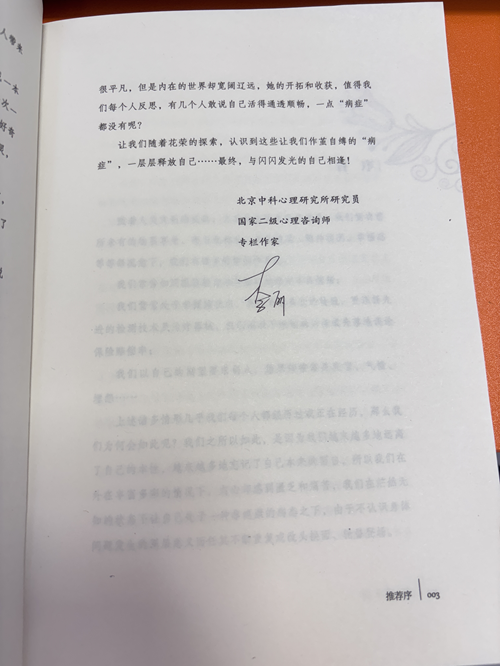 很平凡，但是内在的世界却宽阔辽远，她的开拓和收获，值得我
们每个人反思，有几个人敢说自己活得通透顺畅，一点“病症”
都没有呢？
让我们随着花荣的探索，认识到这些让我们作茧自缚的“病
症”，一层层释放自己……最终，与闪闪发光的自己相逢！
北京中科心理研究所研究员
国家二级心理咨询师
专栏作家
推荐序 003